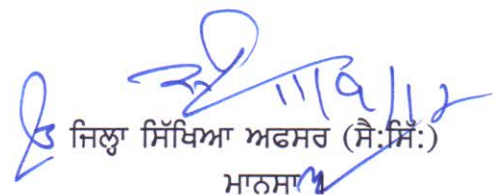 11/9/12
ਜਿਲ੍ਹਾ ਸਿੱਖਿਆ ਅਫਸਰ (ਸੈ:ਸਿੱ:)
ਮਾਨਸਾ